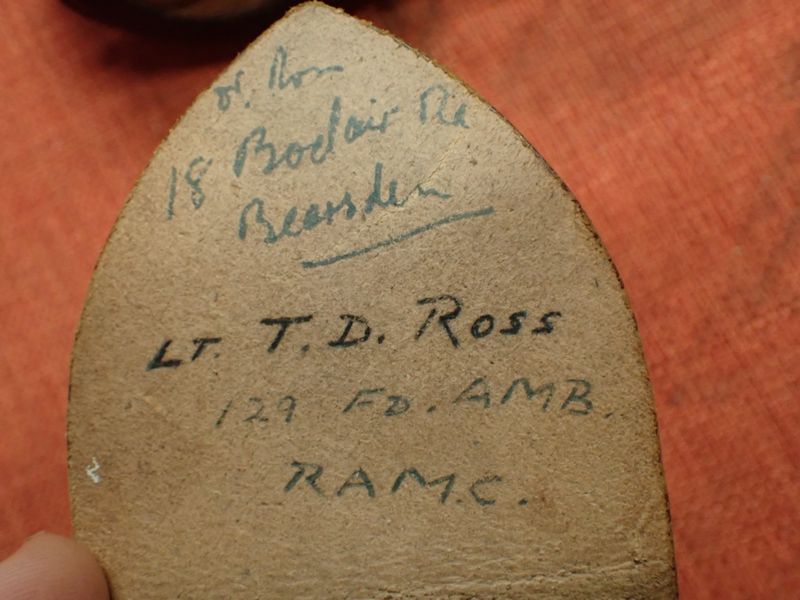 Dr. Ross
18 Boclair Rd
Bearsden
LT. T. D. ROSS
129 FD. AMB.
RAM.C.